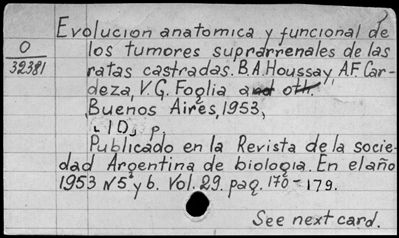 Evolucion anatomica y funcional de
O
32381
los tumores suprarrenales de las
ratas castradas. B.A. Houssay, A.F. Car-
deza, V.G. Foglia and oth.
Buenos Aires, 1953,
10, p.
Publicado en la Revista de la socie-
dad Argentina de biologia. En el año
1953 N5 y 6. Vol. 29. pag. 170-179.
See next card.